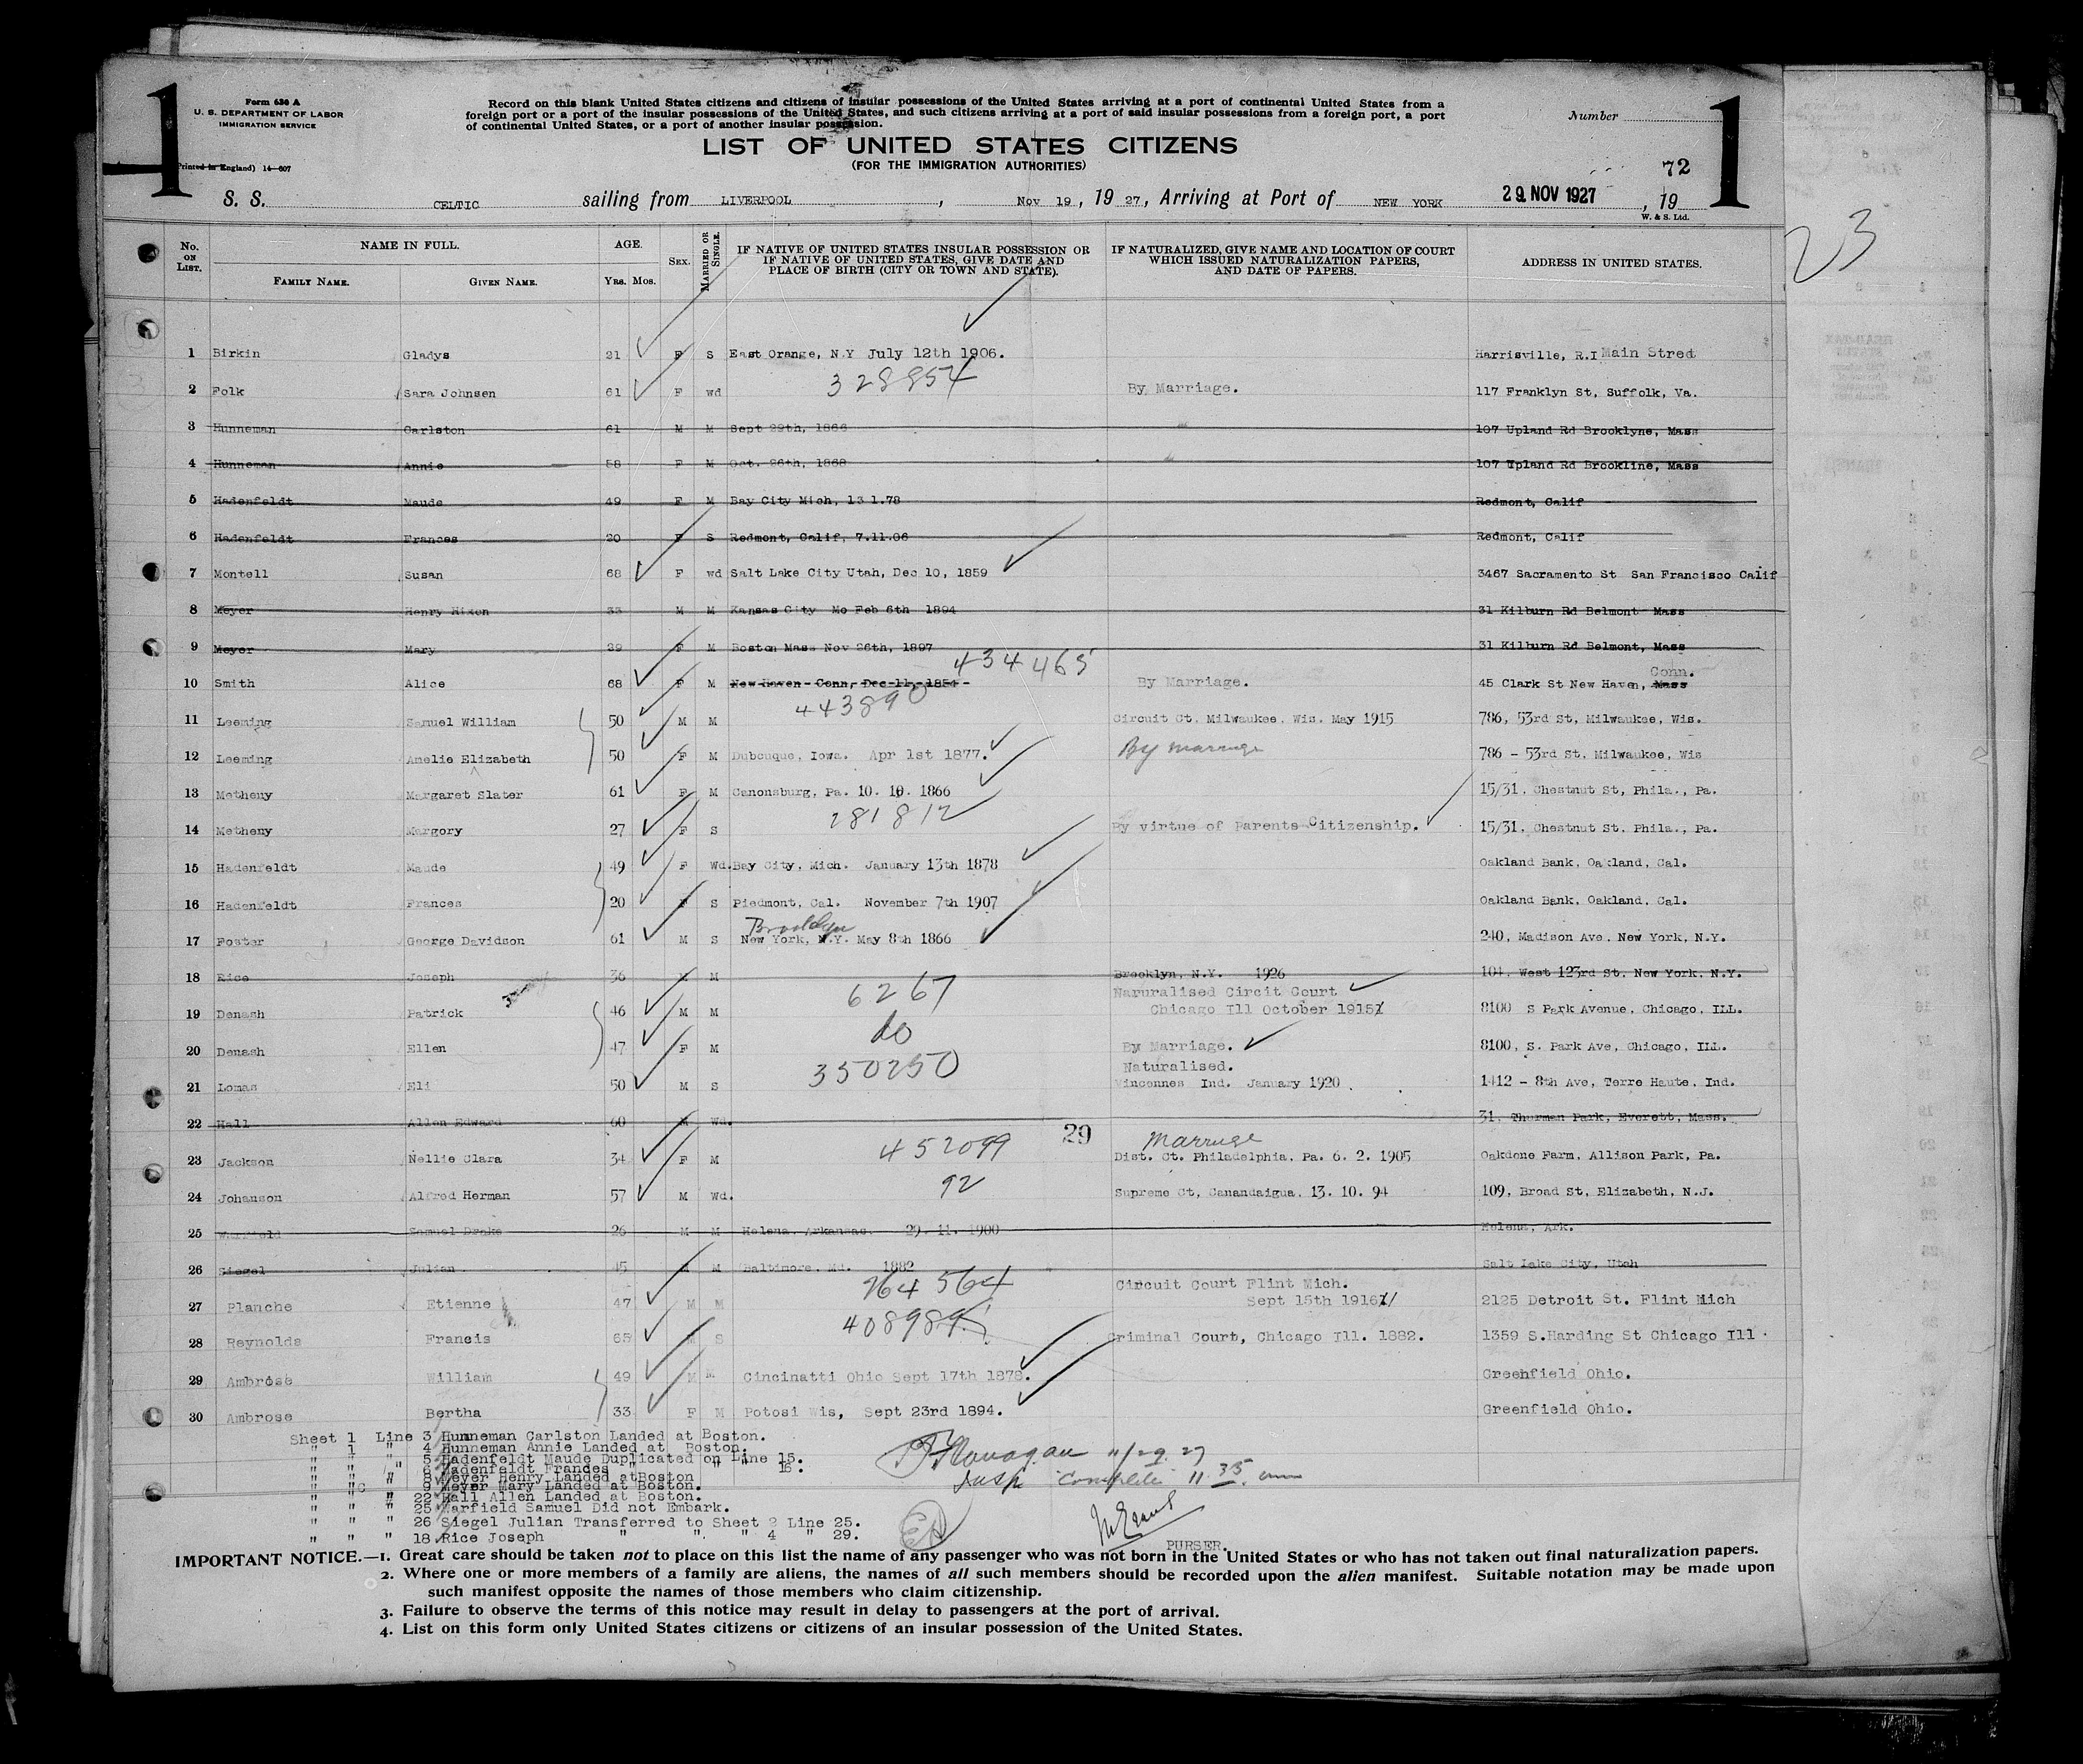 1
1
Form 630 A
U. S. DEPARTMENT OF LABOR
IMMIGRATION SERVICE
Printed in England) 14—607
Record on this blank United States citizens and citizens of insular possessions of the United States arriving at a port of continental United States from a
foreign port or a port of the insular possessions of the United States, and such citizens arriving at a port of said insular possessions from a foreign port, a port
of continental United States, or a port of another insular possession.
Number
LIST OF UNITED STATES CITIZENS
(FOR THE IMMIGRATION AUTHORITIES)
72
S. S. CELTIC sailing from LIVERPOOL, Nov 19, 19 27, Arriving at Port of NEW YORK 29 NOV 1927, 19
W. & S. Ltd.
23
No. ON LIST. NAME IN FULL. AGE. SEX. MARRIED OR SINGLE. IF NATIVE OF UNITED STATES INSULAR POSSESSION OR IF NATIVE OF UNITED STATES, GIVE DATE AND PLACE OF BIRTH (CITY OR TOWN AND STATE). IF NATURALIZED, GIVE NAME AND LOCATION OF COURT WHICH ISSUED NATURALIZATION PAPERS, AND DATE OF PAPERS. ADDRESS IN UNITED STATES.
FAMILY NAME. GIVEN NAME. YRS. MOS.
1 Birkin Gladys 21 F S East Orange, N.Y July 12th 1906. Harrisville, R.I Main Stred
2 Folk Sara Johnsen 61 F wd 328854 By Marriage. 117 Franklyn St, Suffolk, Va.
3 Hunneman Carlston 61 M M Sept 29th, 1866 107 Upland Rd Brooklyne, Mass
4 Hunneman Annie 58 F M Oct. 26th, 1868 107 Upland Rd Brookline, Mass
5 Hadenfeldt Maude 49 F M Bay City Mich, 13 1.78 Redmont, Calif
6 Hadenfeldt Frances 20 F S Redmont, Calif, 7.11.06 Redmont, Calif
7 Montell Susan 68 F wd Salt Lake City Utah, Dec 10, 1859 3467 Sacramento St San Francisco Calif
8 Meyer Henry Hixon 33 M M Kansas City Mo Feb 6th 1894 31 Kilburn Rd Belmont Mass
9 Meyer Mary 29 F M Boston Mass Nov 26th, 1897 31 Kilburn Rd Belmont, Mass
434465 Conn.
10 Smith Alice 68 F M New Haven Conn, Dec 11, 1854 By Marriage. 45 Clark St New Haven, Mass
11 Leeming Samuel William 50 M M 443890 Circuit Ct, Milwaukee, Wis. May 1915 786, 53rd St, Milwaukee, Wis.
12 Leeming Amelie Elizabeth 50 F M Dubcuque, Iowa. Apr 1st 1877. By marriage 786 - 53rd St, Milwaukee, Wis
13 Metheny Margaret Slater 61 F M Canonsburg, Pa. 10. 10. 1866 15/31, Chestnut St, Phila., Pa.
14 Metheny Margory 27 F S 281812 By virtue of Parents Citizenship. 15/31, Chestnut St, Phila., Pa.
15 Hadenfeldt Maude 49 F Wd. Bay City, Mich. January 13th 1878 Oakland Bank, Oakland, Cal.
16 Hadenfeldt Frances 20 F S Piedmont, Cal. November 7th 1907 Oakland Bank, Oakland, Cal.
Brooklyn
17 Foster George Davidson 61 M S New York, N.Y. May 8th 1866 240, Madison Ave, New York, N.Y.
18 Rice Joseph 36 M M Brooklyn, N.Y. 1926 104, West 123rd St, New York, N.Y.
6267 Naruralised Circit Court
19 Denash Patrick 46 M M Chicago Ill October 1915 8100 S Park Avenue, Chicago, ILL.
20 Denash Ellen 47 F M do By Marriage. 8100, S. Park Ave, Chicago, ILL.
350250 Naturalised.
21 Lomas Eli 50 M S Vincennes Ind. January 1920 1412 - 8th Ave, Terre Haute, Ind.
22 Hall Allen Edward 60 M Wd. 31, Thurman Park, Everett, Mass.
29 Marriage
23 Jackson Nellie Clara 34 F M 452099 Dist. Ct. Philadelphia, Pa. 6. 2. 1905 Oakdone Farm, Allison Park, Pa.
24 Johanson Alfred Herman 57 M Wd. 92 Supreme Ct, Canandaigua, 13. 10. 94 109, Broad St, Elizabeth, N.J.
25 Warfield Samuel Drake 26 M M Helena, Arkansas. 29. 11. 1900 Helena, Ark.
26 Siegel Julian 45 M M Baltimore, Md. 1882 Salt Lake City, Utah
264564 Circuit Court Flint Mich.
27 Planche Etienne 47 M M Sept 15th 1916 2125 Detroit St. Flint Mich
28 Reynolds Francis 65 M S 408989 Criminal Court, Chicago Ill. 1882. 1359 S.Harding St Chicago Ill
29 Ambrose William 49 M M Cincinatti Ohio Sept 17th 1878. Greenfield Ohio.
30 Ambrose Bertha 33 F M Potosi Wis, Sept 23rd 1894. Greenfield Ohio.
Sheet 1 Line 3 Hunneman Carlston Landed at Boston.
" 1 " 4 Hunneman Annie Landed at Boston.
" " 5 Hadenfeldt Maude Duplicated on Line 15.
" " 6 Hadenfeldt Frances " " " 16.
" " " 8 Meyer Henry Landed at Boston
" " " 9 Meyer Mary Landed at Boston.
" " " 22 Hall Allen Landed at Boston.
" " " 25 Warfield Samuel Did not Embark.
" " " 26 Siegel Julian Transferred to Sheet 2 Line 25.
" " " 18 Rice Joseph " " " 4 " 29.
Flanagan 11/29.27
Insp Complete 11.35 am
PURSER.
IMPORTANT NOTICE.—1. Great care should be taken not to place on this list the name of any passenger who was not born in the United States or who has not taken out final naturalization papers.
2. Where one or more members of a family are aliens, the names of all such members should be recorded upon the alien manifest. Suitable notation may be made upon
such manifest opposite the names of those members who claim citizenship.
3. Failure to observe the terms of this notice may result in delay to passengers at the port of arrival.
4. List on this form only United States citizens or citizens of an insular possession of the United States.